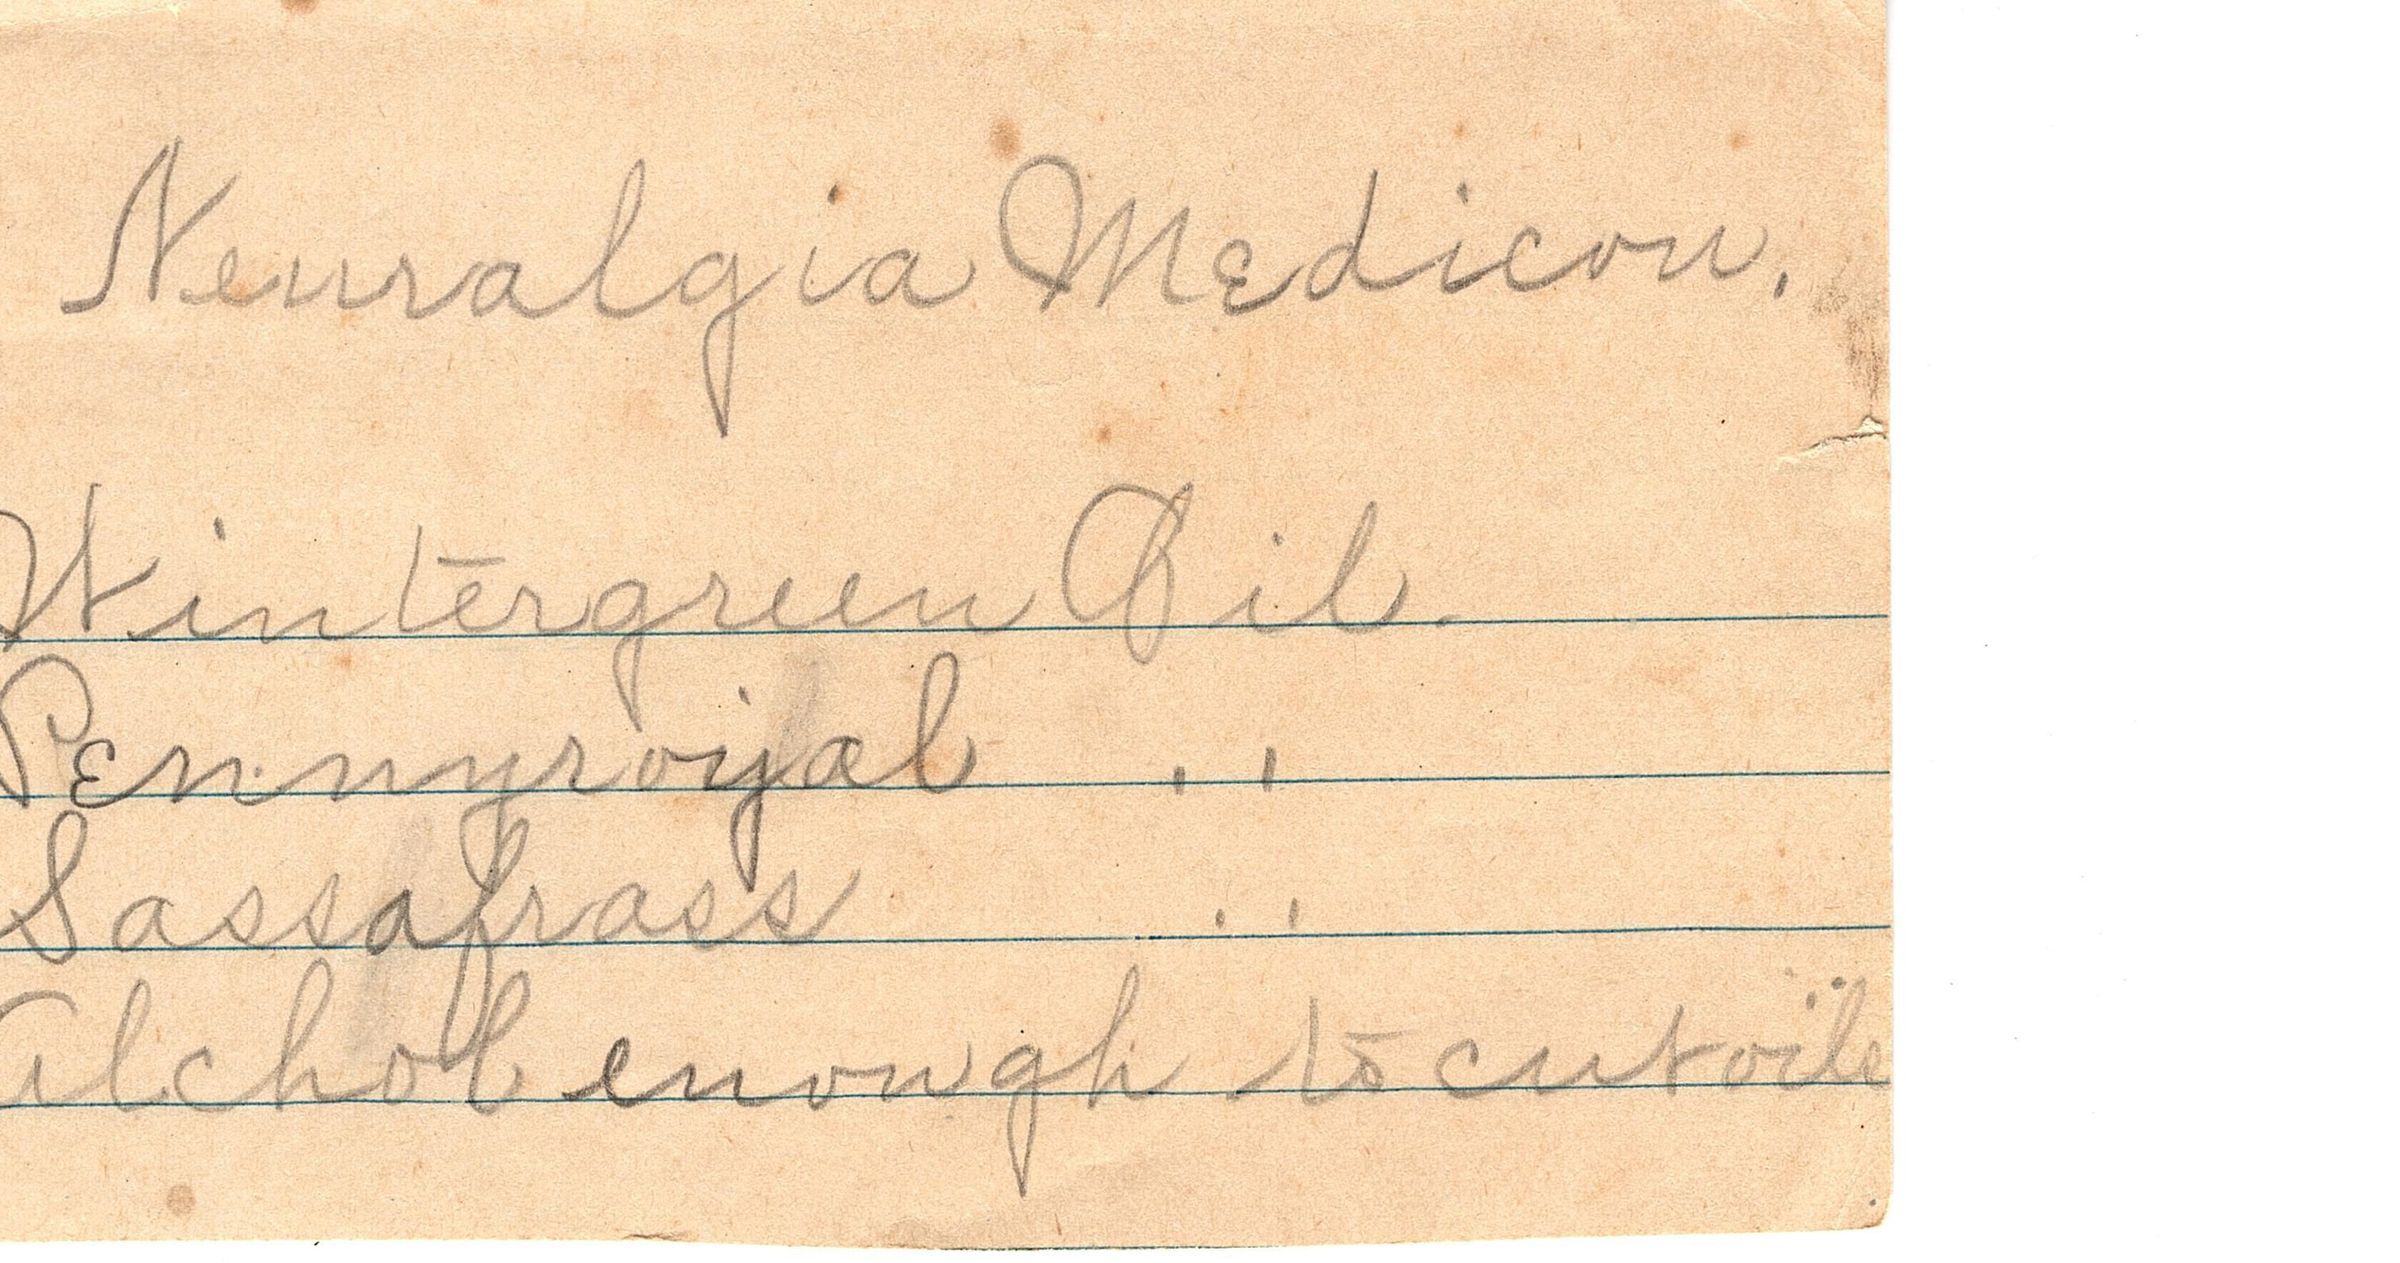 Neuralgia Medicon.
Wintergreen Oil.
Pennyroyal . .
Sassafrass . .
Alchol enough to cut oile